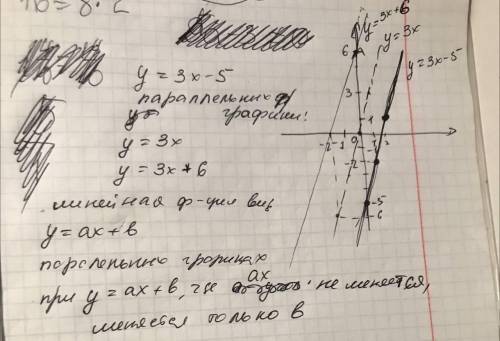 y = 3x - 5
паралельних
графики:
y = 3x
y = 3x + 6
линейная ф-ция вид
y = ax + b
паралельних графиках
при y = ax + b, где ax не меняется,
меняется только b
y=3x+6
y=3x
y=3x-5
6
3
1
-2 -1 0 1 2
-2
-5
6